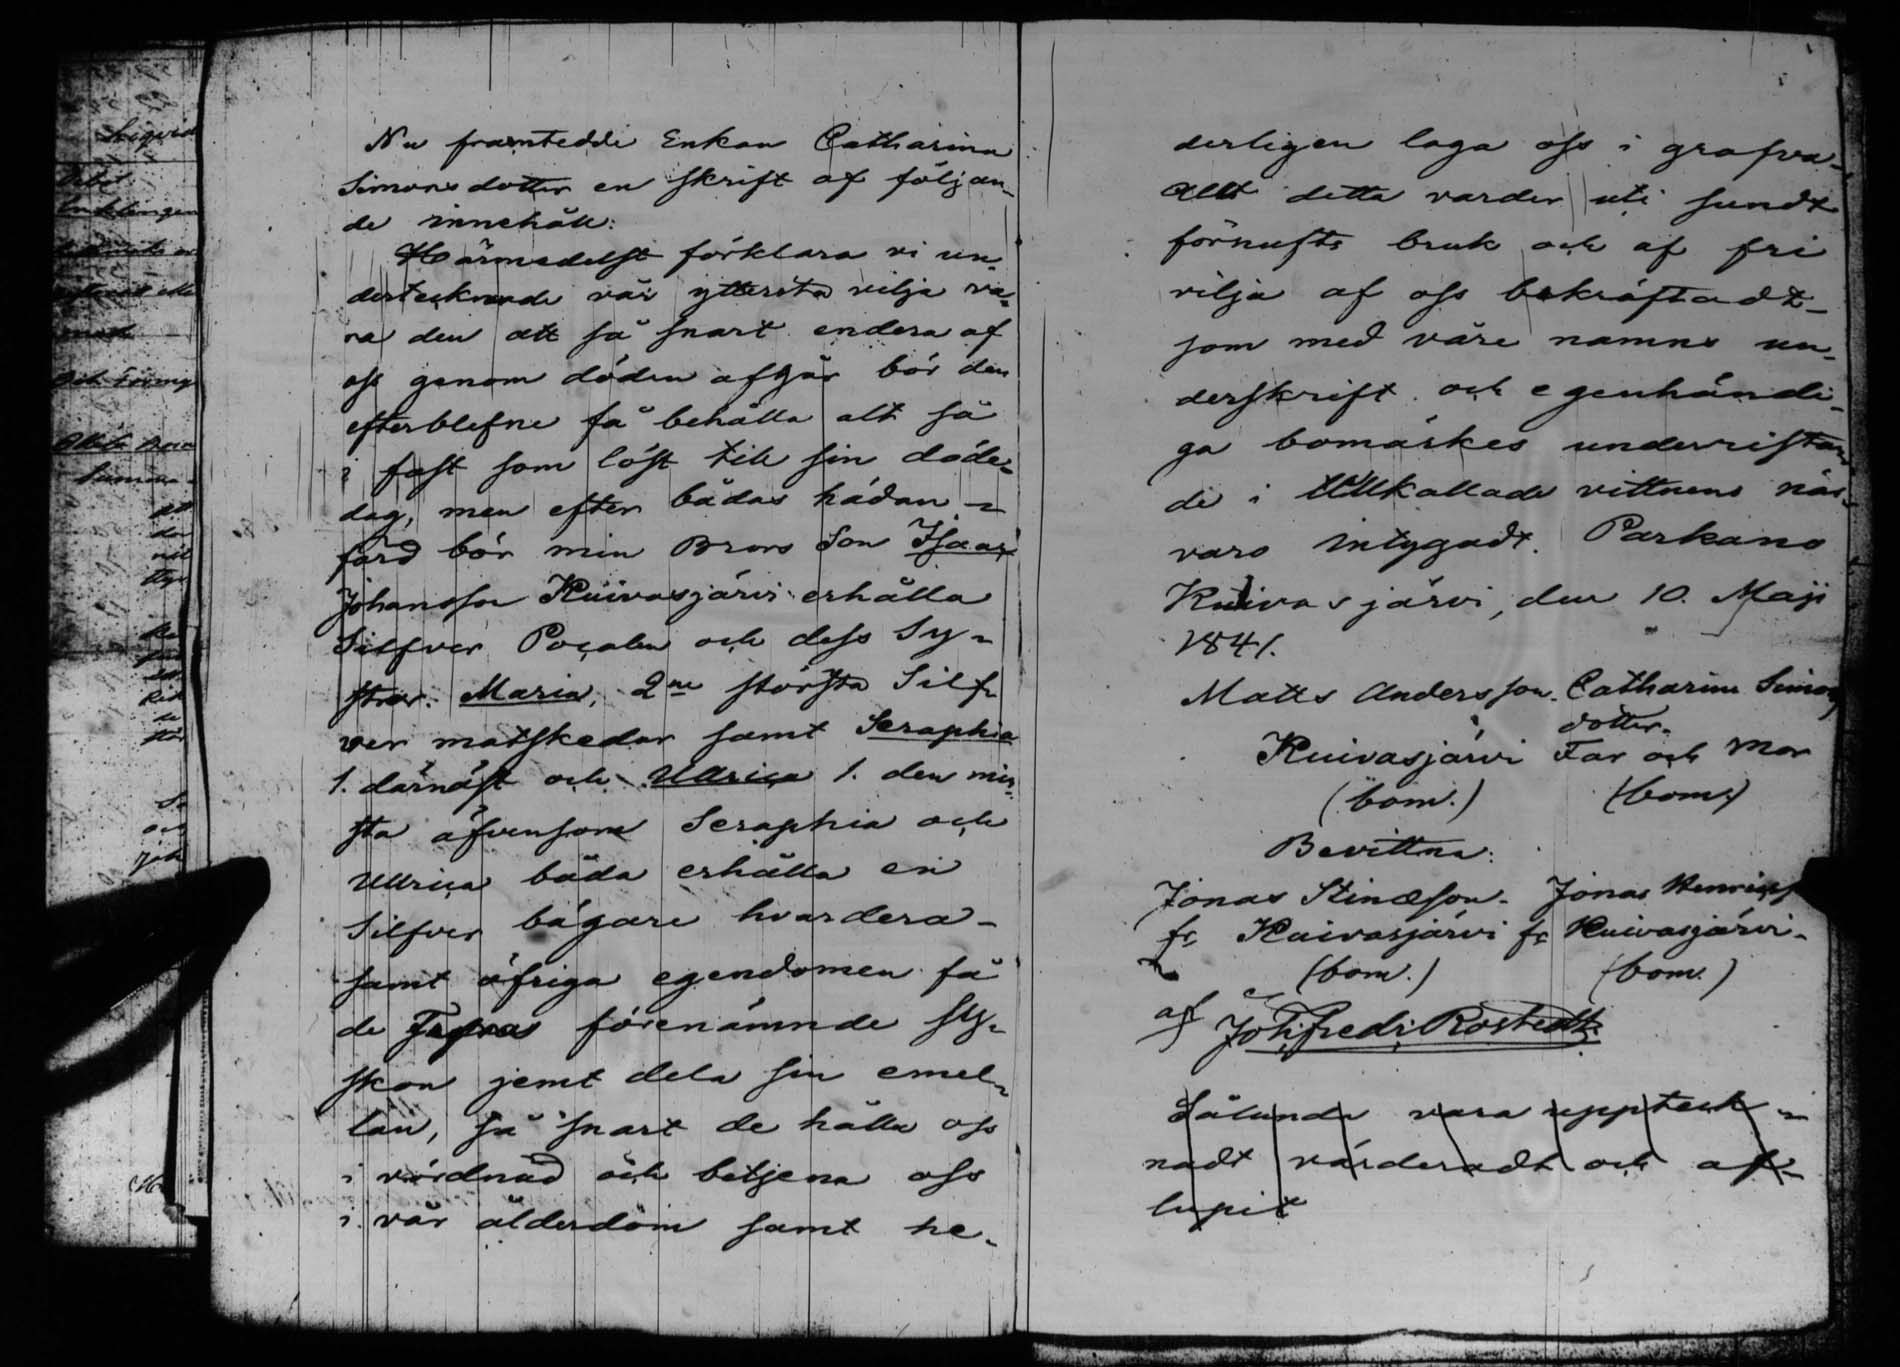 Nu framtedde Enkan Catharina
Simonsdotter en skrift af följan-
de innehåll:
Härmedelst förklara vi un-
dertecknade vår yttersta vilja va-
ra den att så snart endera af
oss genom döden afgår bör den
efterblefne få behålla alt så
i fast som löst till sin döde-
dag, men efter bådas hädan-
färd bör min Brors Son Isaac
Johansson Kuivasjärvi erhålla
Silfver Pocalen och dess Sy-
strar. Maria, 2ne största Silf-
ver matskedar samt Seraphia
1. därnäst och Ullrica 1. den min-
sta äfvensom Seraphia och
Ullrica båda erhålla en
Silfver bägare hvardera-
samt öfriga egendomen få
de förenämnde sy-
skon jemt dela sin emel-
lan, så snart de hålla oss
i vördnad och betjena oss
i vår ålderdom samt he-
derligen laga oss i grafva-
Allt detta varder uti sundt
förnufts bruk och af fri
vilja af oss bekräftadt-
som med våre namns un-
derskrift och egenhändi-
ga bomärkes underristan-
de i tillkallade vittnens när-
varo intygadt. Parkano
Kuivasjärvi, den 10. Maji
1841.
Matts Andersson. Catharina Simons
dotter.
Kuivasjärvi Far och Mor
(bom.) (bom.)
Bevittna:
Jonas Stinæson. Jonas Henricss
fr. Kuivasjärvi fr. Kuivasjärvi-
(bom.) (bom.)
af Joh. Fredr. Rostedt.
Sålunda vara uppteck-
nadt värderadt och af-
lupit